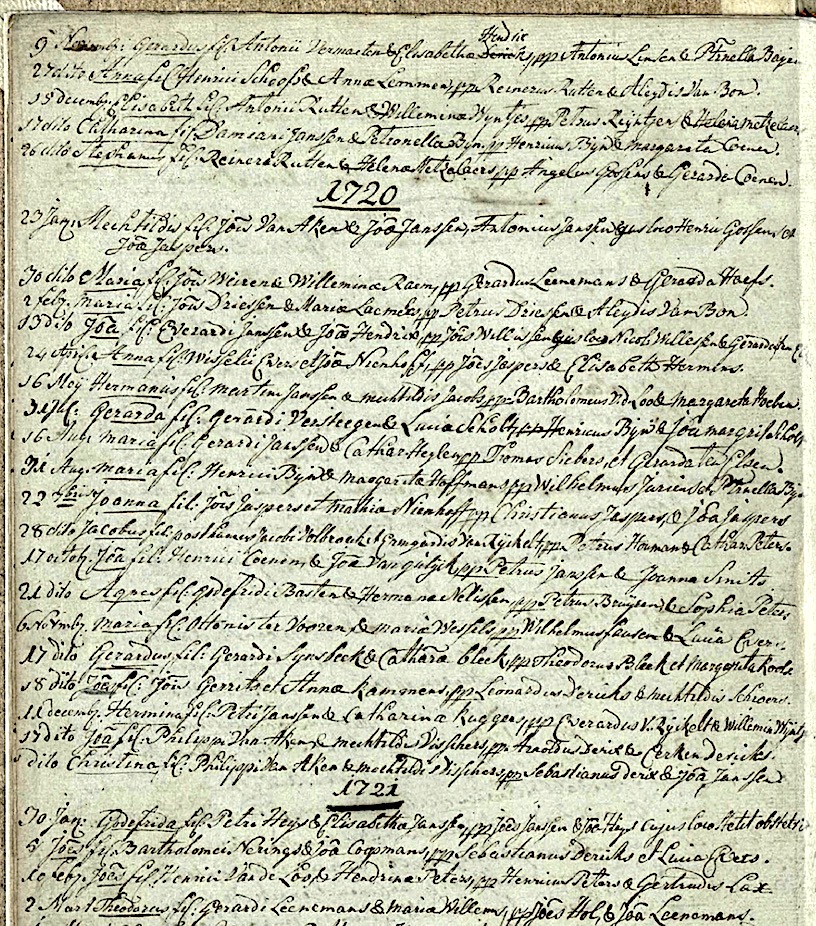 Hendrix
9 Novembr: Gerardus fil: Antonii Vermaeten & Elisabetha Derichs, pp Antonius Linsen & Ptrnella Beyen
27 dito Anna fil: Henrici Schoofs & Anna Lemmen, pp Reinerus Rutten & Aleydis Van Bon.
15 decemb. Elisabeth fil: Antonii Rutten & Willemina Wyntjes pp Petrus Rijntjen & Helena
17 dito Catharina fil: Damiani Janssen & Petronella Byn. pp Henricus Byn & margareta Coenen.
26 dito Stephanus fil: Reineri Rutten & Helena pp Angelus Gossens & Gerarda Coenen.
1720
23 Jan: Mechtildis fil: Jois Van Aken & Joa Janssen, Antonius Janssen ejus loco Henric Gossen et
Joa Jaspers.
30 dito Maria fil: Jois Weiren & Willemina Raem, pp Gerardus Leenemans & Gerarda Hoefs.
2 feb. maria fil: Jois Driessen & Maria pp Petrus Driessen & Aleydis Van Bon.
13 dito Joa fil: Everardi Janssen & Joa Hendrix pp Jois Willissen ejus loco Nicol: Willessen & Gerarda
24 Anna fil: Wesselii Evers et Joa Nienhof, pp Joes Jaspers & Elisabeth Hermens.
16 Meij Hermanus fil: martini Janssen & mechtildis Jacobs pp Bartholomeus V.d. Loo & margareta Hoeben.
31 Jul: Gerarda fil: Gerardi Versteegen & Lucia Scholt, pp Henricus Byn & Joa margrita
16 Aug. maria fil: Gerardi Janssen & Cathar Heylen pp Thomas Siebers, et Gerarda ten Elsen.
31 Aug. maria fil: Henrici Byn & margareta Hoffmans pp Wilhelmus et Ptrnella Byn
22 7bris Joanna fil: Jois Jaspers et mathia Nienhoff pp Christianus Jaspers, & Joa Jaspers
28 dito Jacobus fil: posthumus Jacobi Holbroeck et Ermgardis Van Rijckelt, pp Petrus Houman & Cathar Peters.
17 octob. Joa fil: Henrici Coenen, & Joa Van gulyck, pp Petrus Janssen & Joanna Smits
21 dito Agnes fil: Godefridi Basten & Hermana Nelissen, pp Petrus Bruysen & Sophia Peters
6 Novmb. maria fil: Ottonis ter Vooren, & maria Wessels pp Wilhelmus & Lucia Evers.
17 dito Gerardus fil: Gerardi Synsbeck & Cathara bleek, pp Theodorus Bleek et Margareta Kools
18 dito Joes fil: Jois Gerrits et Anna Kammens, pp Leonardus Dericks & mechtildis
11 decemb. Hermina fil: Petri Janssen & Catharina Kuggen, pp Everardus V. Ryckelt & Willemin Wijntjes
15 dito Joa fil: Philippi Van Aken, & mechtildis Disschers, pp Arnoldus Derix & Cerken dericks.
dito Christina fil: Philippi Van Aken & mechtildis Disschers, pp Sebastianus derix & Joa Janssen
1721
30 Jan: Godefrida fil: Petri Heys & Elisabetha Janssen, pp Joes Janssen & Joa Heys cujus loco stetit obstetrix
5 Joes fil: Bartholomei Nerings & Joa Coopmans, pp Sebastianus Dericks et Lucia Evers.
10 feb. Joes fil: Henrici Van de Loo, & Hendrina Peters, pp Henricus Peters & Gertrudis Lax
2 Mart Theodorus fil: Gerardi Leenemans & maria Willems, pp Joes Hol, & Joa Leenemans.